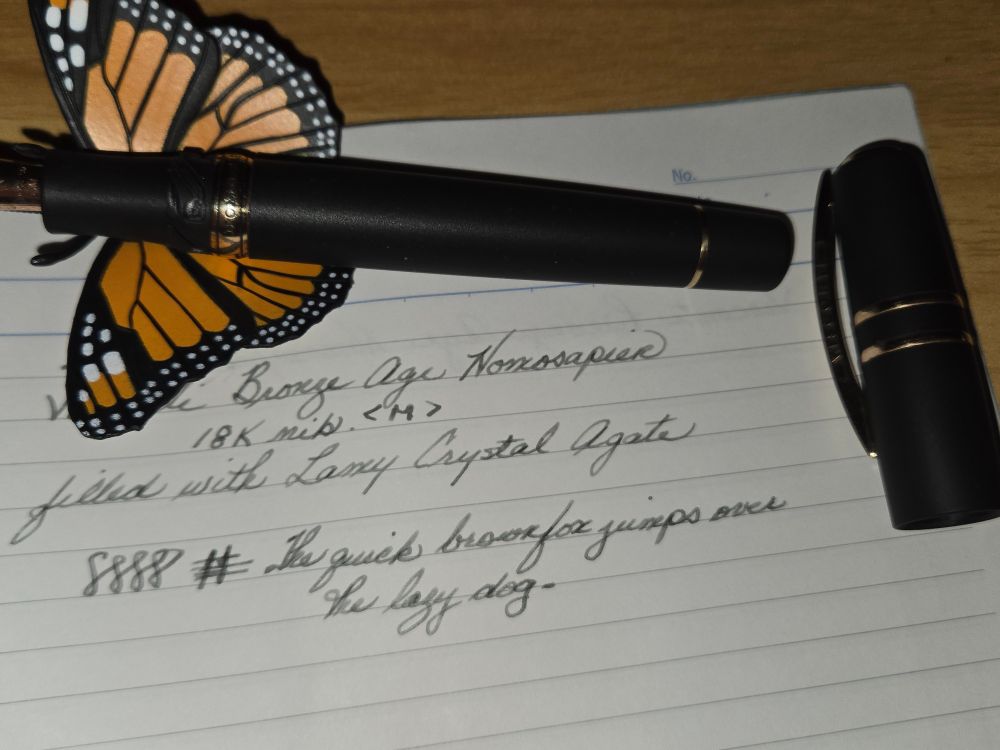 No.
Bronze Age Homosapien
18K nib. <M>
filled with Lamy Crystal Agate
8888 # The quick brown fox jumps over
the lazy dog.